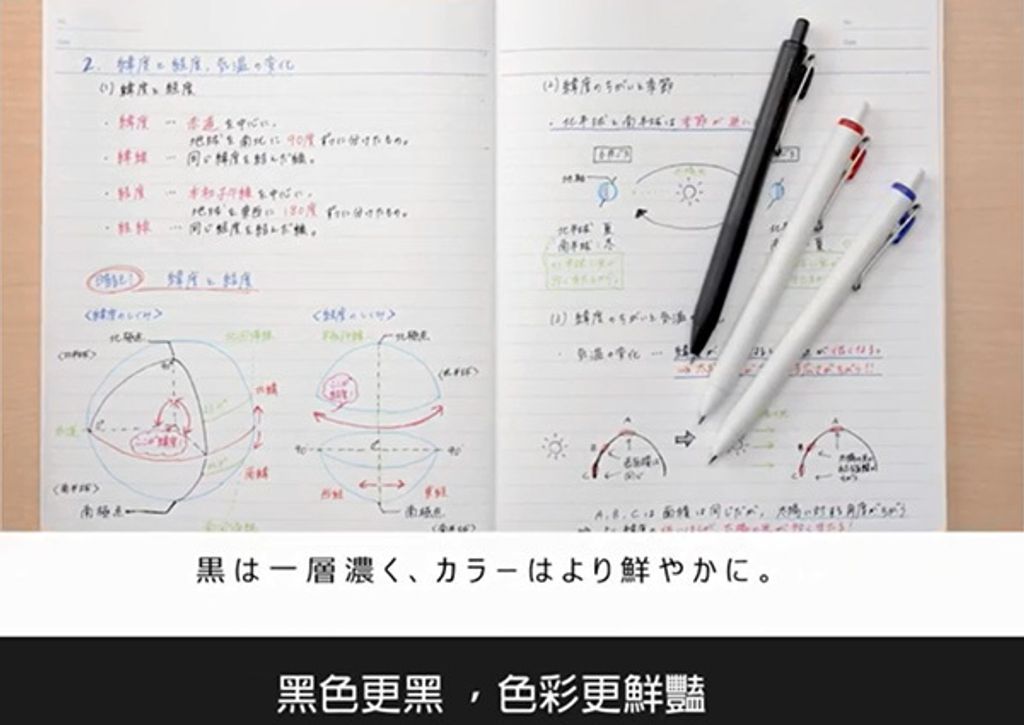 2. 緯度と経度、気温の変化
(1) 緯度と経度
・緯度 … 赤道を中心に、
地球を南北に90度ずつに分けたもの。
・緯線 … 同じ緯度を結んだ線。
・経度 … 本初子午線を中心に、
地球を東西に180度ずつに分けたもの。
・経線 … 同じ経度を結んだ線。
暗記! 緯度と経度
〈緯度のしくみ〉
〈経度のしくみ〉
北極点
〈北半球〉
北緯
赤道
ここが緯度!
南緯
〈南半球〉
南極点
北極点
〈北半球〉
90°
90°
西経
東経
南極点
(2) 緯度のちがいと季節
・北半球と南半球は季節が
地軸
北半球:夏
南半球:冬
緯度のちがいと気温
・気温の変化 …
A
B
C
A
B
C
A,B,Cは面積は同じだが、太陽に対する角度がちがう
黒は一層濃く、カラーはより鮮やかに。
黑色更黑，色彩更鮮豔